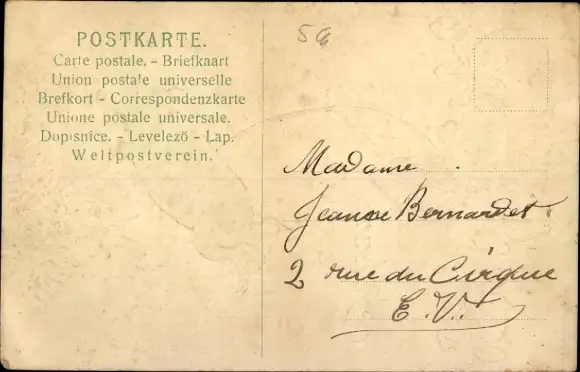 POSTKARTE.
Carte postale. - Briefkaart
Union postale universelle
Brefkort - Correspondenzkarte
Unione postale universale.
Dopisnice. - Levelező - Lap.
Weltpostverein.
56
Madame
Jeanne Bernardet
2 rue du Cirque
E. V.